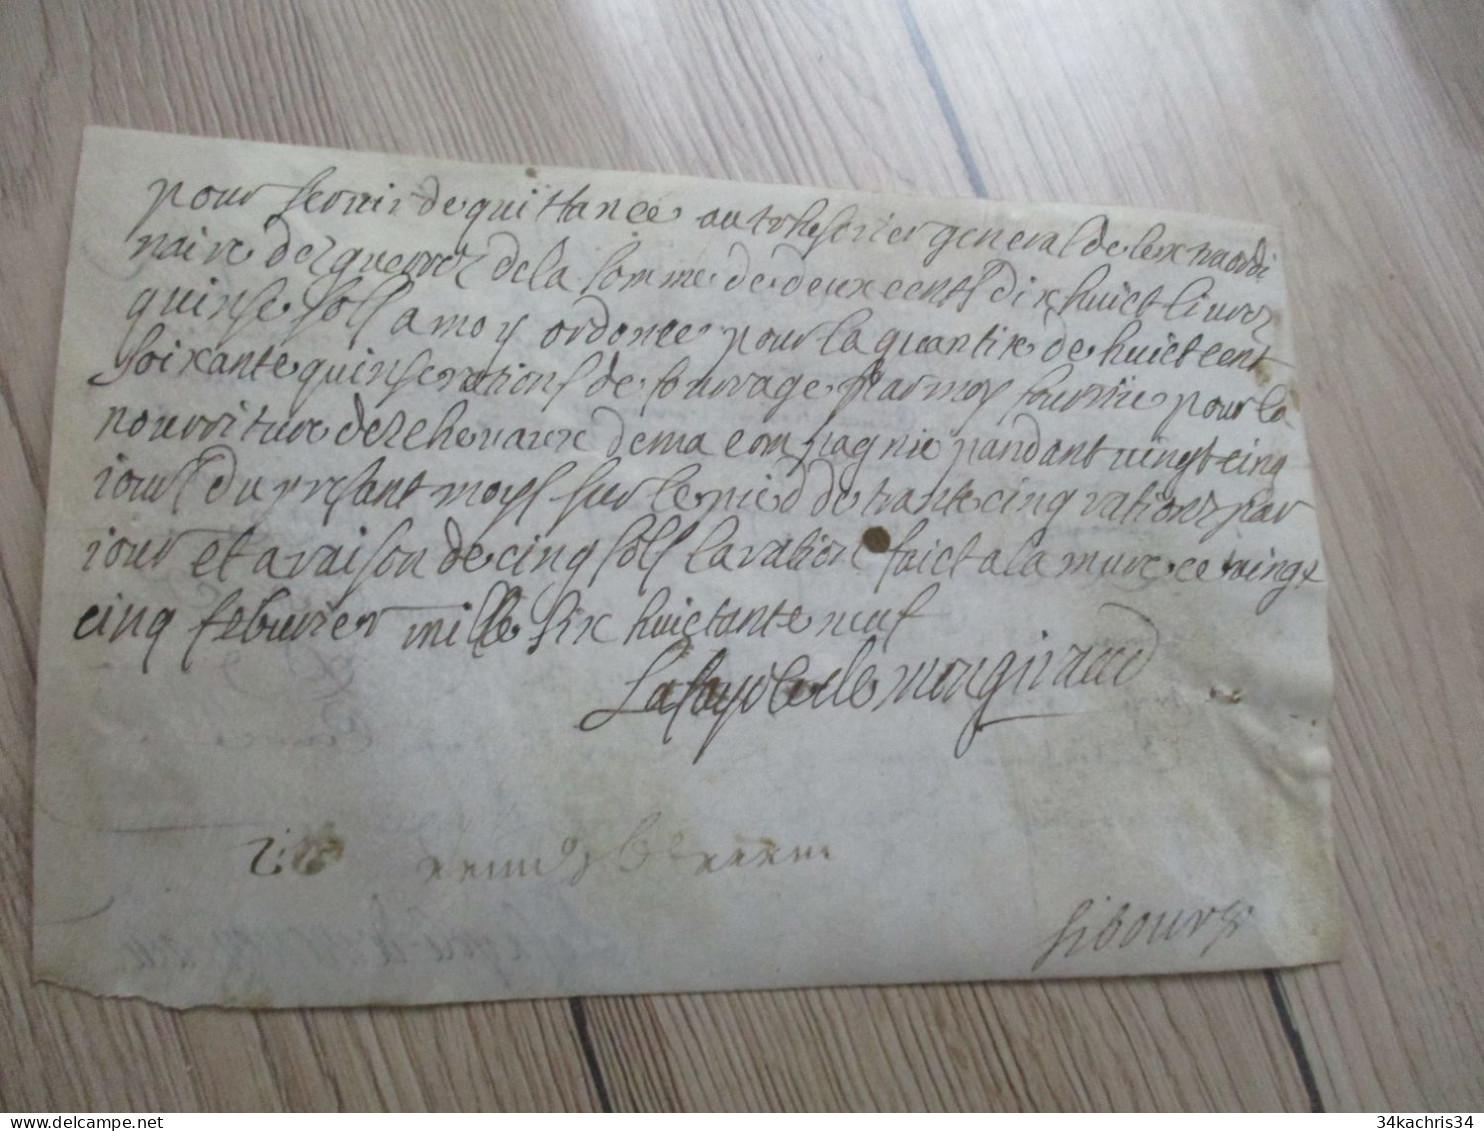 pour servir de quittance au thresorier general de lextraordi
naire dez guerrez de la somme de deux cents dix huict livrez
quinse sols a moy ordonee pour la quantite de huict cent
soixante quinse rations de fourrage par moy fournie pour la
nourriture dez chevaux de ma compagnie pandant vingt cinq
jours du presant moys sur le pied de trante cinq rationz par
jour et a raison de cinq sols la ration faict a la mure ce vingt
cinq febvrier mille six huictante neuf
Lafayole de mongiraud
sibourg
34kachris34